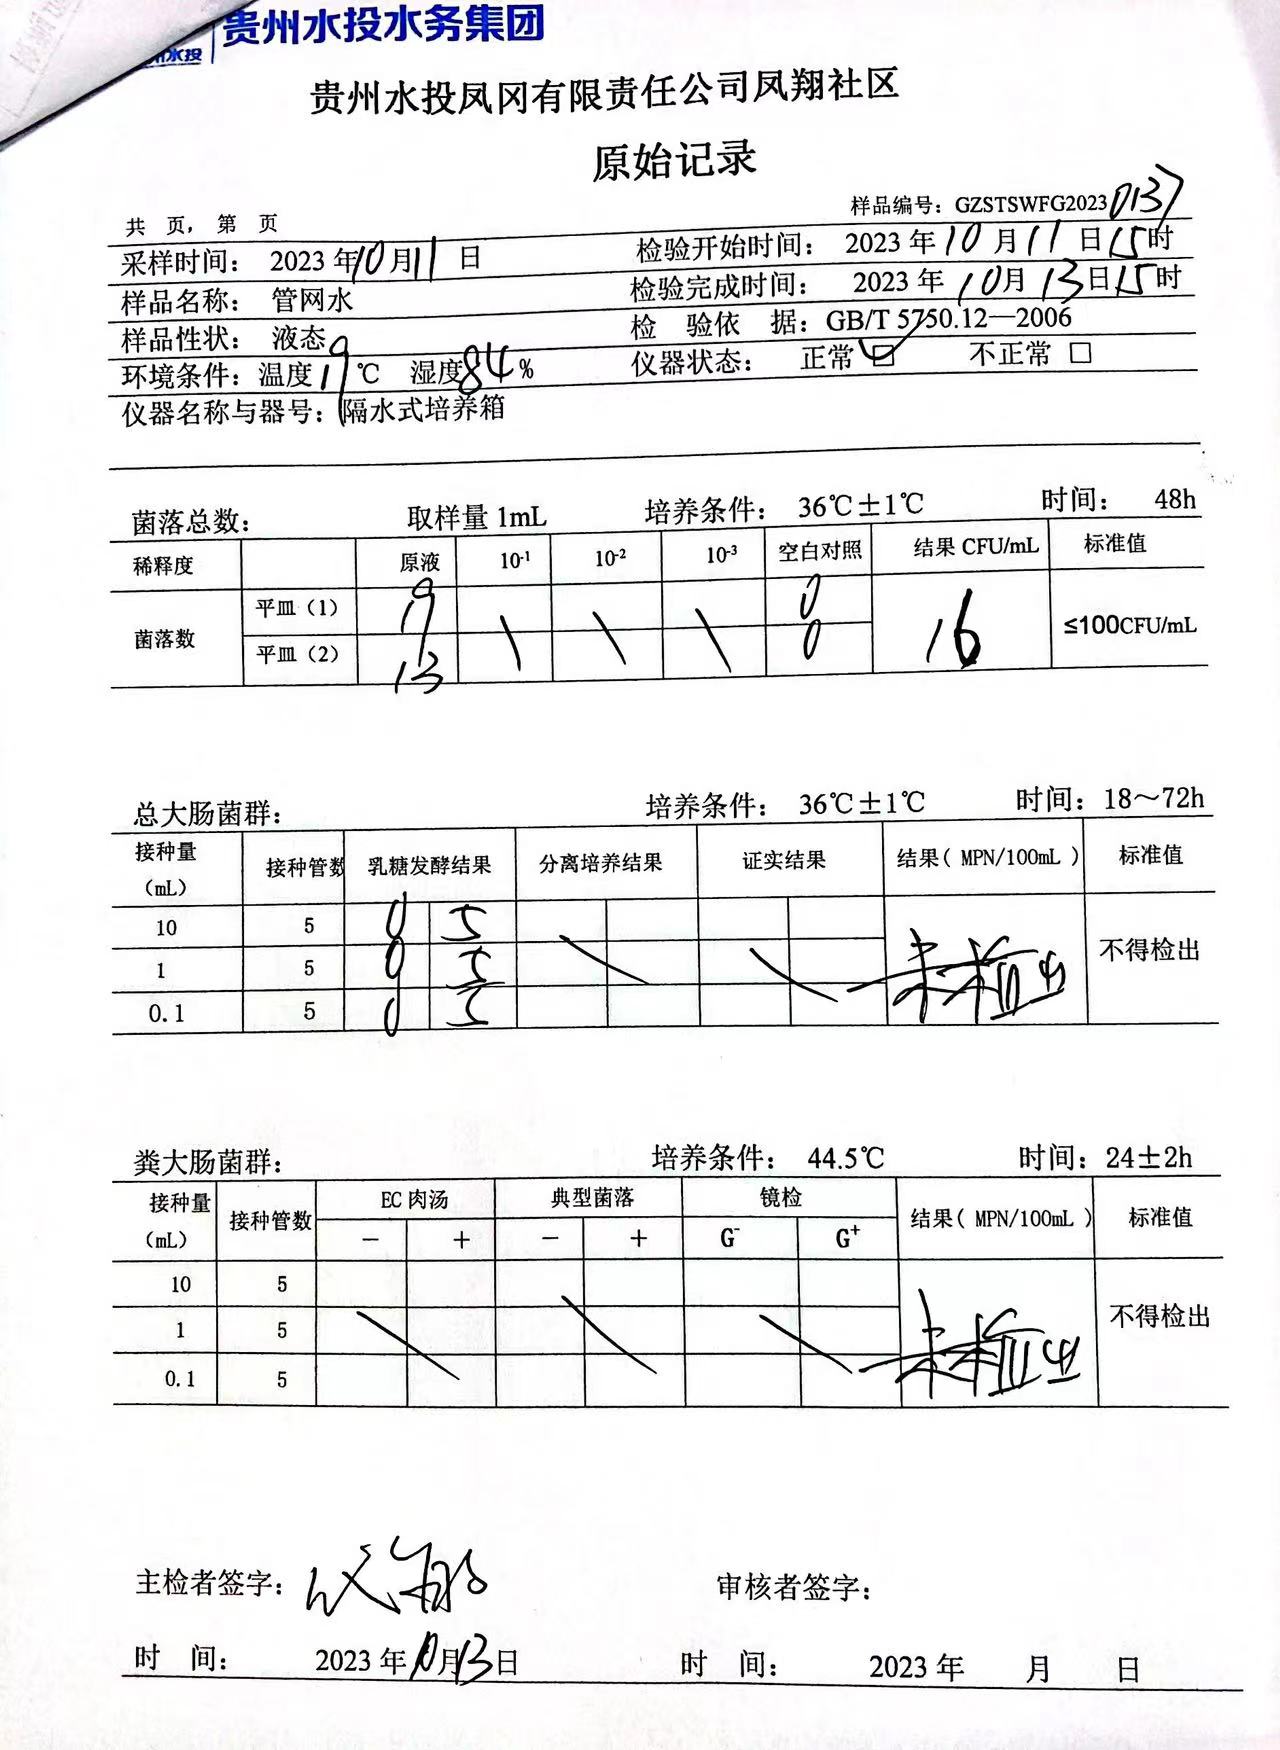 贵州水投水务集团
水投
贵州水投凤冈有限责任公司凤翔社区
原始记录
样品编号：GZSTSWFG20230137
共 页，第 页
采样时间： 2023年10月11日 检验开始时间： 2023年10月11日15时
样品名称： 管网水 检验完成时间： 2023年10月13日15时
样品性状： 液态 检 验依 据：GB/T 5750.12—2006
环境条件：温度19℃ 湿度84% 仪器状态： 正常☑ 不正常□
仪器名称与器号：隔水式培养箱
菌落总数： 取样量 1mL 培养条件： 36℃±1℃ 时间： 48h
稀释度 原液 10-1 10-2 10-3 空白对照 结果 CFU/mL 标准值
菌落数 平皿（1） 19 \ \ \ 0 16 ≤100CFU/mL
平皿（2） 13 0
总大肠菌群： 培养条件： 36℃±1℃ 时间：18～72h
接种量（mL） 接种管数 乳糖发酵结果 分离培养结果 证实结果 结果（MPN/100mL） 标准值
10 5 0 5 未检出 不得检出
1 5 0 5
0.1 5 0 5
粪大肠菌群： 培养条件： 44.5℃ 时间：24±2h
接种量（mL） 接种管数 EC肉汤 典型菌落 镜检 结果（MPN/100mL） 标准值
－ ＋ － ＋ G- G+
10 5 未检出 不得检出
1 5
0.1 5
主检者签字： 审核者签字：
时 间： 2023年10月13日 时 间： 2023年 月 日